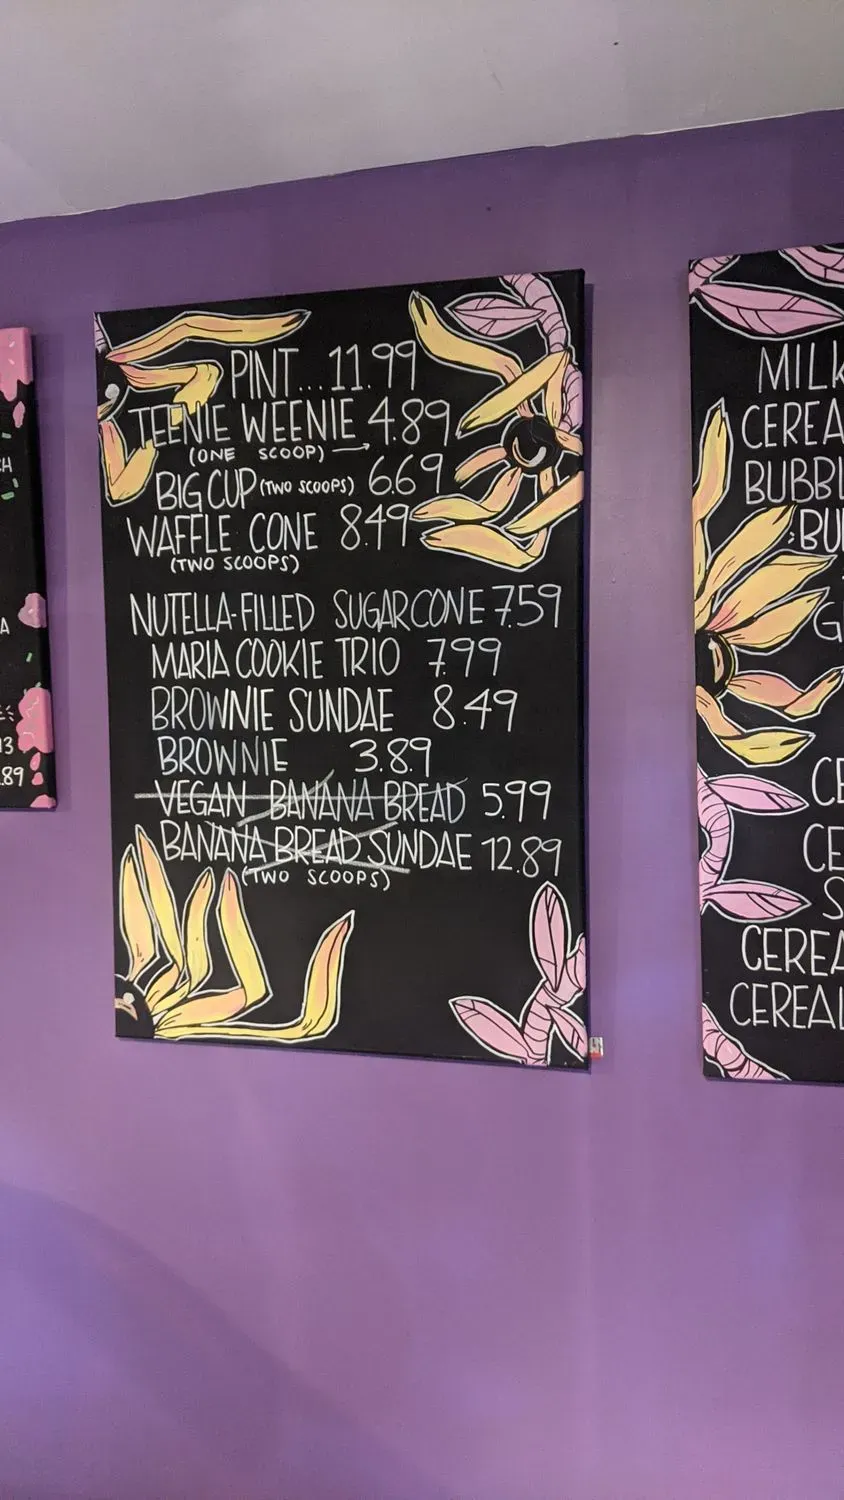 PINT... 11.99
TEENIE WEENIE 4.89
(ONE SCOOP) →
BIG CUP (TWO SCOOPS) 6.69
WAFFLE CONE 8.49
(TWO SCOOPS)
NUTELLA-FILLED SUGARCONE 7.59
MARIA COOKIE TRIO 7.99
BROWNIE SUNDAE 8.49
BROWNIE 3.89
VEGAN BANANA BREAD 5.99
BANANA BREAD SUNDAE 12.89
(TWO SCOOPS)
CH
A
13
.89
MILK
CEREA
BUBBL
BU
G
CE
CE
S
CEREA
CEREAL